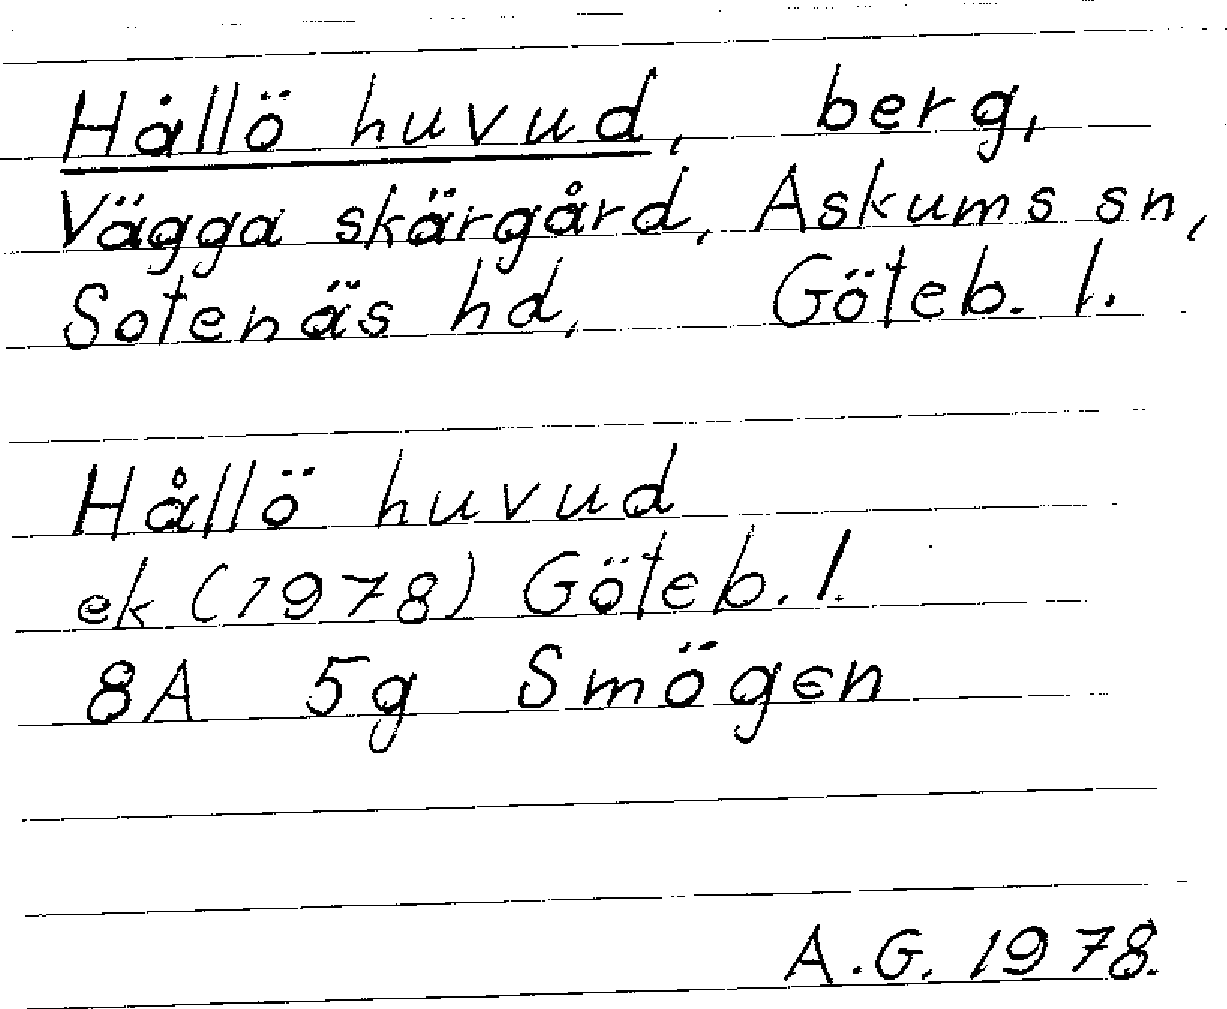 Hållö huvud, berg,
Vägga skärgård, Askums sn,
Sotenäs hd, Göteb. l.
Hållö huvud
ek (1978) Göteb. l.
8A 5g Smögen
A.G. 1978.